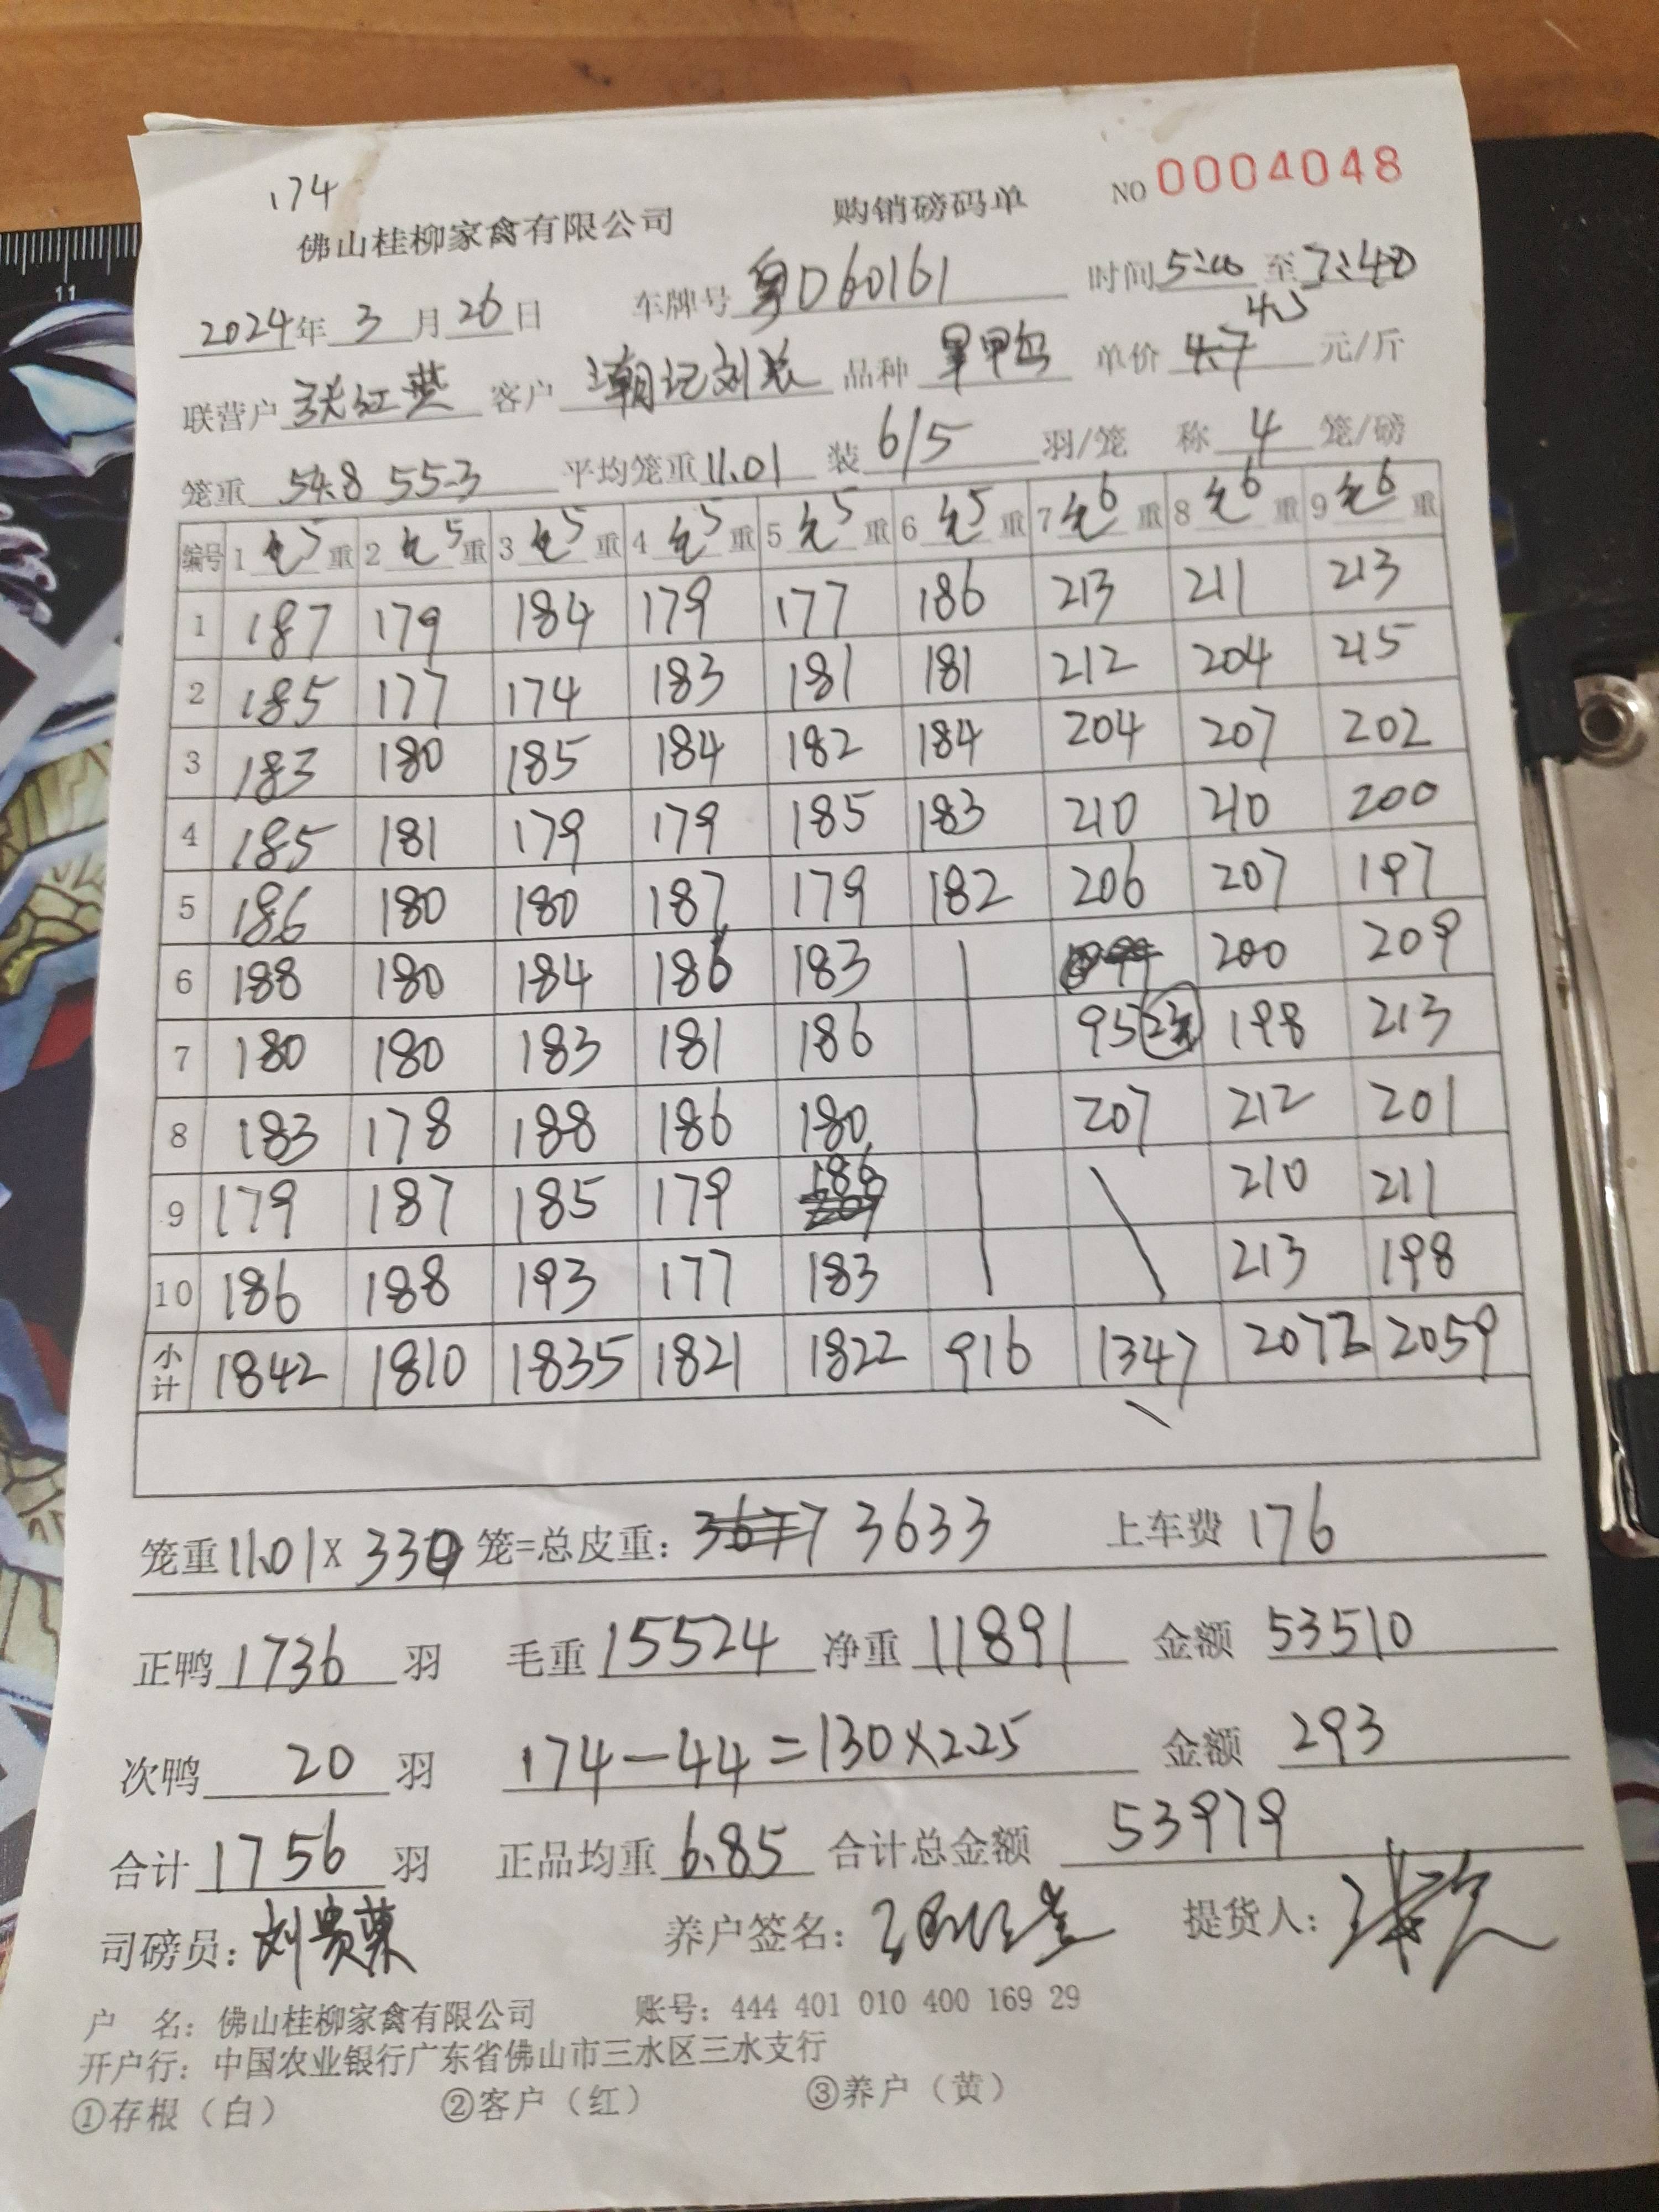 174
佛山桂柳家禽有限公司 购销磅码单 NO 0004048
2024年 3 月 26 日 车牌号 粤D60161 时间 5:00 至 7:40
4.5
联营户 张红燕 客户 潮记刘长 品种 单价 4.7 元/斤
笼重 54.8 55.3 平均笼重 11.01 装 6/5 羽/笼 称 4 笼/磅
编号 1 5 重 2 5 重 3 5 重 4 5 重 5 5 重 6 5 重 7 6 重 8 6 重 9 6 重
1 187 179 184 179 177 186 213 211 213
2 185 177 174 183 181 181 212 204 215
3 183 180 185 184 182 184 204 207 202
4 185 181 179 179 185 183 210 210 200
5 186 180 180 187 179 182 206 207 197
6 188 180 184 186 183 200 209
7 180 180 183 181 186 95 198 213
8 183 178 188 186 180 207 212 201
9 179 187 185 179 186 210 211
10 186 188 193 177 183 213 198
小计 1842 1810 1835 1821 1822 916 1347 2072 2059
笼重 11.01 x 330 笼=总皮重: 3677 3633 上车费 176
正鸭 1736 羽 毛重 15524 净重 11891 金额 53510
次鸭 20 羽 174-44=130×2.25 金额 293
合计 1756 羽 正品均重 6.85 合计总金额 53979
司磅员: 刘贵荣 养户签名: 提货人:
户 名: 佛山桂柳家禽有限公司 账号: 444 401 010 400 169 29
开户行: 中国农业银行广东省佛山市三水区三水支行
①存根（白） ②客户（红） ③养户（黄）
11